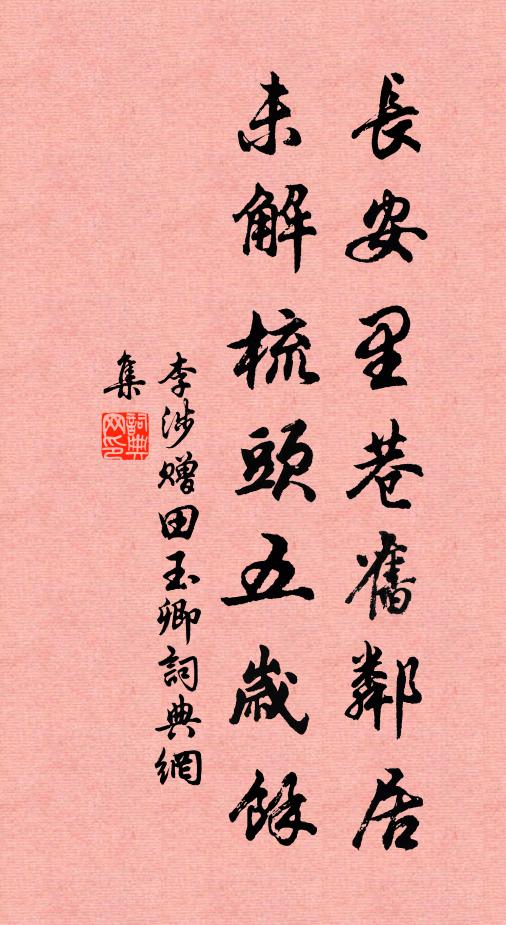 長安里巷舊鄰居
未解梳頭五歲餘
李涉贈田玉卿詞典網
集
詞典網印